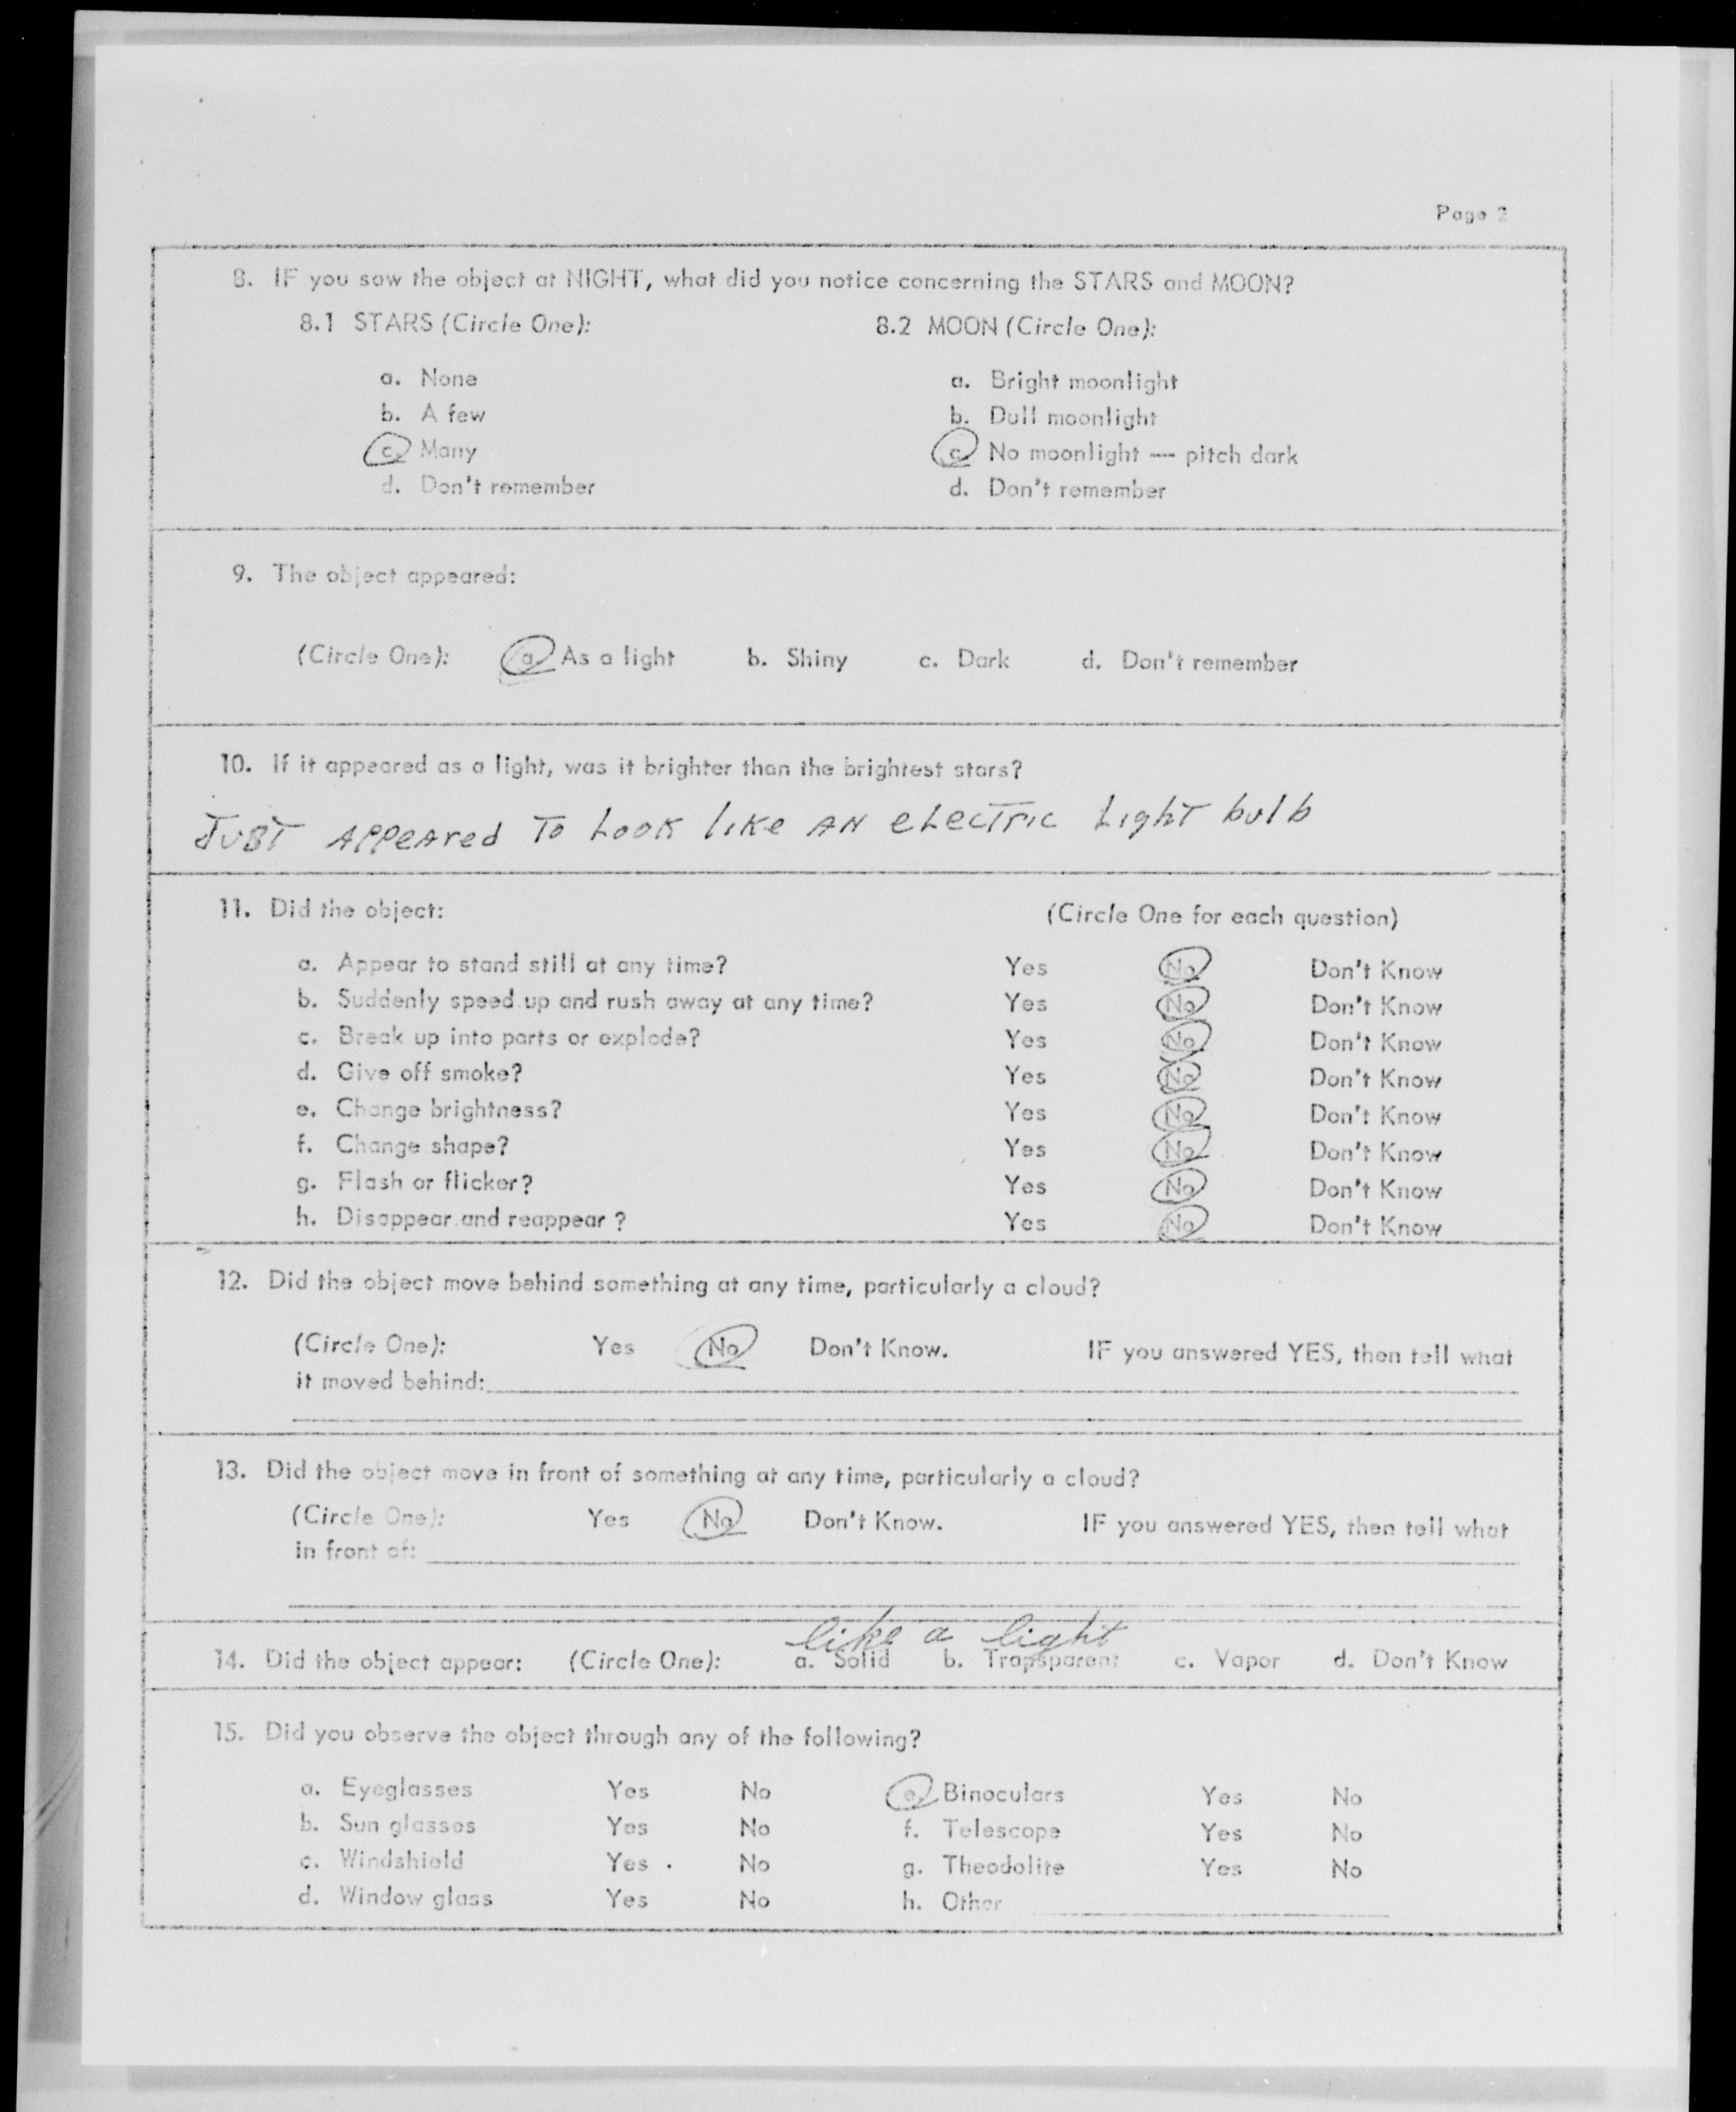 Page 2
8. IF you saw the object at NIGHT, what did you notice concerning the STARS and MOON?
8.1 STARS (Circle One): 8.2 MOON (Circle One):
a. None a. Bright moonlight
b. A few b. Dull moonlight
c. Many c. No moonlight — pitch dark
d. Don't remember d. Don't remember
9. The object appeared:
(Circle One): a. As a light b. Shiny c. Dark d. Don't remember
10. If it appeared as a light, was it brighter than the brightest stars?
JUST APPeAred To Look like AN eLecTric LighT bulb
11. Did the object: (Circle One for each question)
a. Appear to stand still at any time? Yes No Don't Know
b. Suddenly speed up and rush away at any time? Yes No Don't Know
c. Break up into parts or explode? Yes No Don't Know
d. Give off smoke? Yes No Don't Know
e. Change brightness? Yes No Don't Know
f. Change shape? Yes No Don't Know
g. Flash or flicker? Yes No Don't Know
h. Disappear and reappear? Yes No Don't Know
12. Did the object move behind something at any time, particularly a cloud?
(Circle One): Yes No Don't Know. IF you answered YES, then tell what
it moved behind:
13. Did the object move in front of something at any time, particularly a cloud?
(Circle One): Yes No Don't Know. IF you answered YES, then tell what
in front of:
like a light
14. Did the object appear: (Circle One): a. Solid b. Transparent c. Vapor d. Don't Know
15. Did you observe the object through any of the following?
a. Eyeglasses Yes No e. Binoculars Yes No
b. Sun glasses Yes No f. Telescope Yes No
c. Windshield Yes No g. Theodolite Yes No
d. Window glass Yes No h. Other